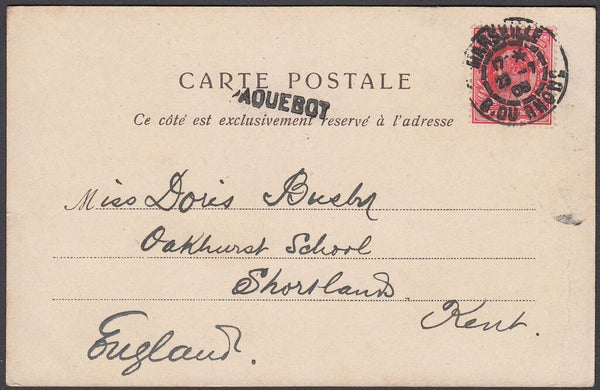 MARSEILLE B. DU RHONE
CARTE POSTALE
PAQUEBOT
Ce côté est exclusivement reservé à l'adresse
Miss Doris Busby
Oakhurst School
Shortlands
Kent.
England.